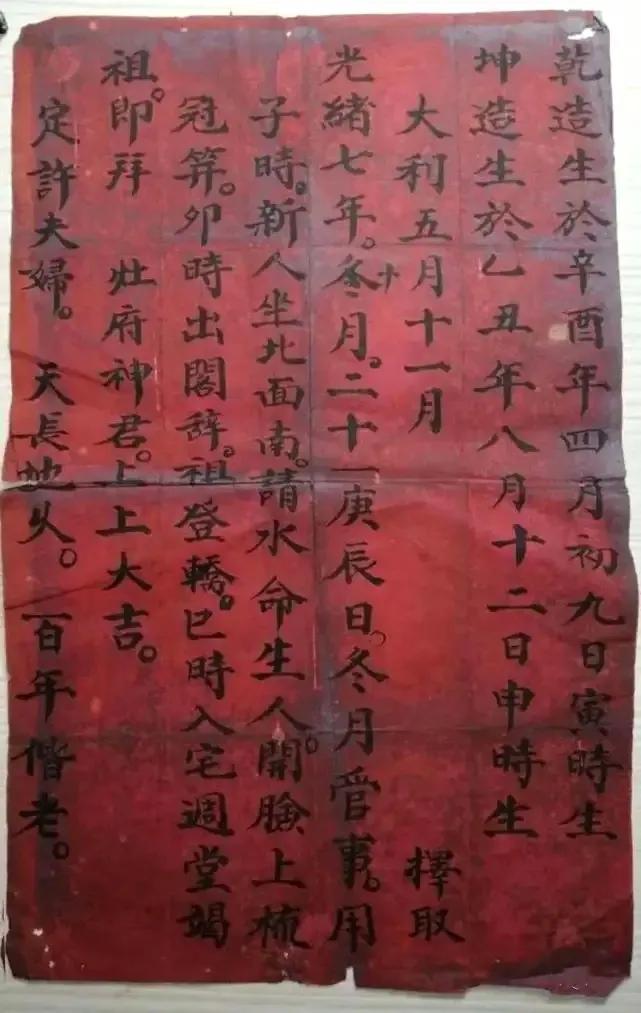 乾造生於辛酉年四月初九日寅時生
坤造生於乙丑年八月十二日申時生
大利五月十一月 擇取
光緒七年。冬月。二十一庚辰日。冬月管事。用
子時。新人坐北面南。請水命生人。開臉上梳
冠笄。卯時出閣辞。祖登轎。巳時入宅週堂竭
祖。即拜 灶府神君。上上大吉。
定許夫婦。天長地久。百年偕老。